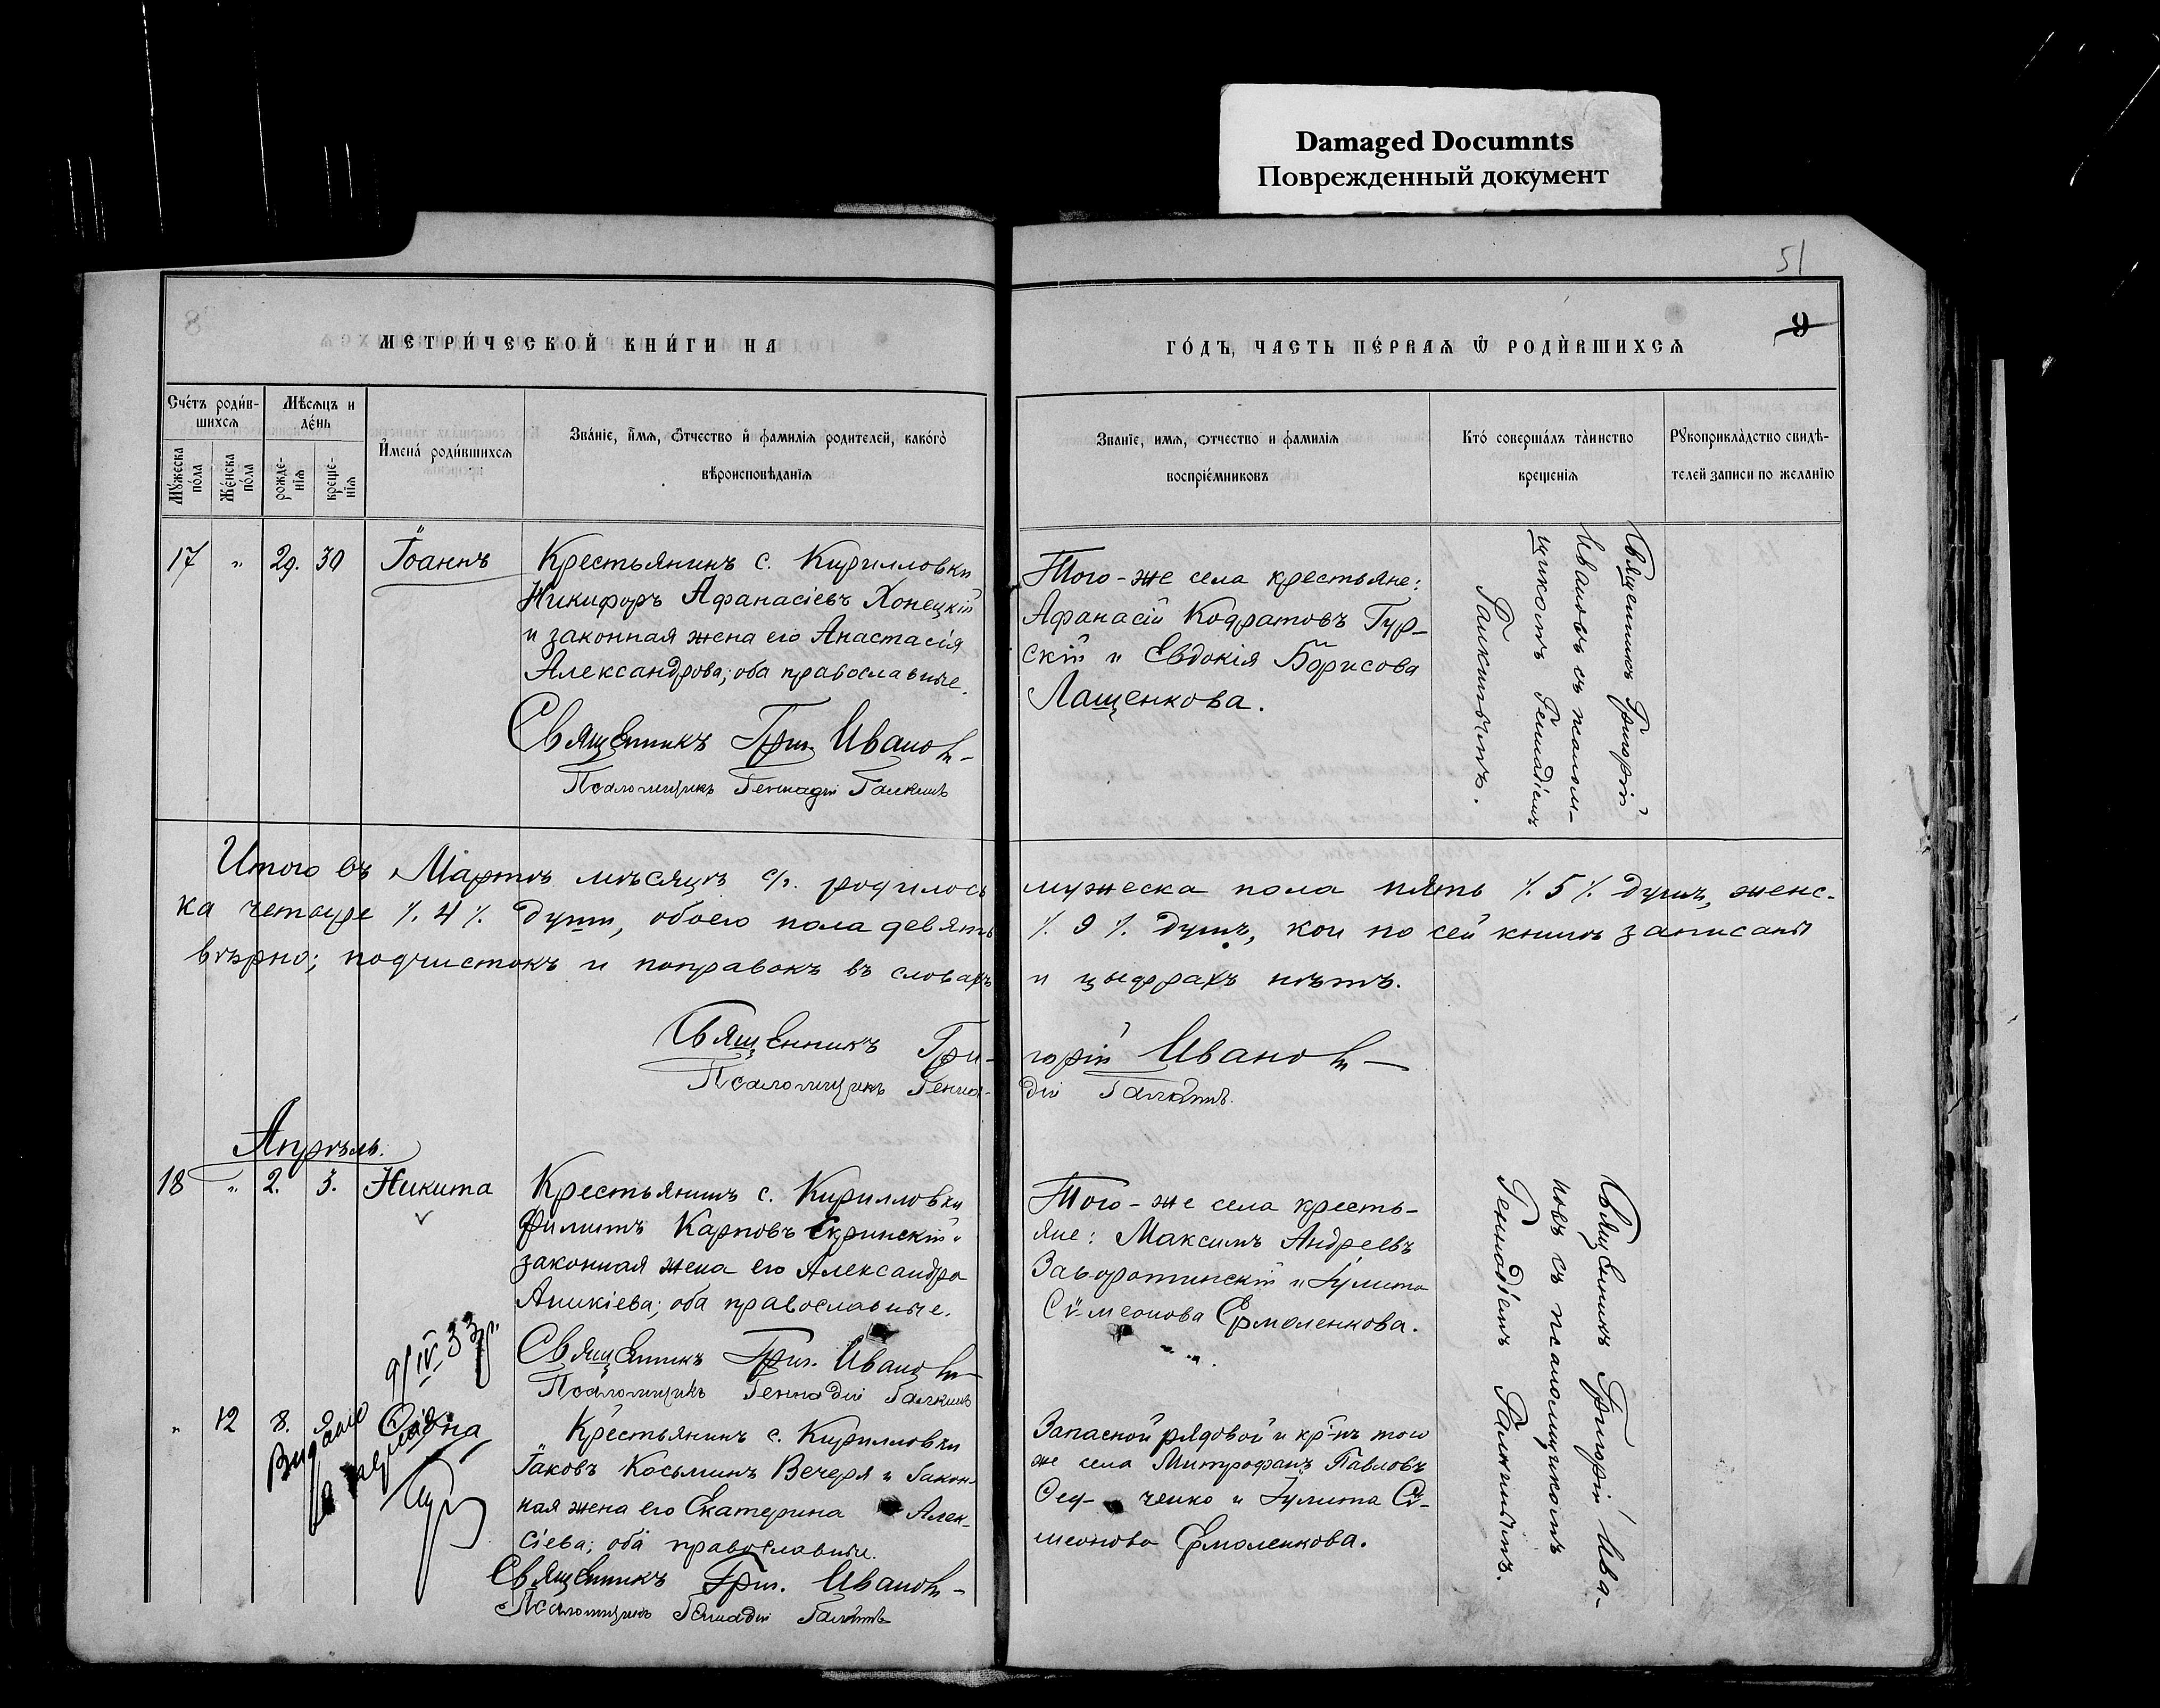 Damaged Documnts
Поврежденный документ
51
9
МЕТРИ́ЧЕСКОЙ КНИ́ГИ НА
ГО́ДЪ, ЧАСТЬ ПЕ́РВАѦ Ѿ РОДИ́ВШИХСѦ
Сче́тъ роди́в-
шихсѧ
Мѣ́сѧцъ и
де́нь
Му́жеска
по́ла
Же́нска
по́ла
рожде-
нїѧ
креще-
нїѧ
И҆мена́ роди́вшихсѧ
Зва́нїе, и҆́мѧ, ѻ҆́тчество и҆ фамилїѧ родителей, како́гѡ
вѣроисповѣ́данїѧ
Зва́нїе, имѧ, ѻтчество и фамилїѧ
воспрїе́мниковъ
Кто́ соверша́лъ та́инство
креще́нїѧ
Рꙋкоприкла́дство свидѣ́-
телей записи по жела́нїю
17 " 29. 30 Іоаннъ
Крестьянинъ с. Кирилловки
Никифоръ Афанасіевъ Хонецкій
и законная жена его Анастасія
Александрова; оба православные.
Священникъ Григ. Ивановъ
Псаломщикъ Геннадій Галкинъ
Того-же села крестьяне:
Афанасій Кодратовъ Гур-
скій и Евдокія Борисова
Лащенкова.
Священникъ Григорій
Ивановъ съ псалом-
щикомъ Геннадіемъ
Галкинымъ.
Итого въ Мартѣ мѣсяцѣ с/г. родилось мужеска пола пять /. 5 /. душъ, женс-
ка четыре /. 4 /. душъ, обоего пола девять /. 9 /. душъ, кои по сей книгѣ записаны
вѣрно; подчистокъ и поправокъ въ словахъ и цыфрахъ нѣтъ.
Священникъ Гри-горій Ивановъ
Псаломщикъ Генна-дій Галкинъ.
Апрѣль.
18 " 2. 3. Никита
Крестьянинъ с. Кирилловки
Филиппъ Карповъ Скринскій и
законная жена его Александра
Аникіева; оба православные.
Священникъ Григ. Ивановъ
Псаломщикъ Геннадій Галкинъ
Того-же села кресть-
яне: Максимъ Андреевъ
Заворотинскій и Іулита
Сѵмеонова Ермоленкова.
Священникъ Григорій Ива-
новъ съ псаломщикомъ
Геннадіемъ Галкинымъ.
9/IV 33 г.
" 12 8.
Видано
Крестьянинъ с. Кирилловки
Іаковъ Косьминъ Вечеря и закон-
ная жена его Екатерина Алек-
сіева; оба православные.
Священникъ Григ. Ивановъ
Псаломщикъ Геннадій Галкинъ
Запасной рядовой и кр-нъ того
же села Митрофанъ Павловъ
ченко и Іулита Сѵ-
меонова Ермоленкова.